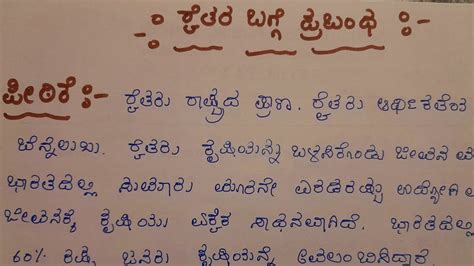 -: ರೈತರ ಬಗ್ಗೆ ಪ್ರಬಂಧ :-
ಪೀಠಿಕೆ :- ರೈತರು ರಾಷ್ಟ್ರದ ಪ್ರಾಣ. ರೈತರು ಆರ್ಥಿಕತೆಯ
ಬೆನ್ನೆಲುಬು. ರೈತರು ಕೃಷಿಯನ್ನು ಬಳಸಿಕೊಂಡು ಜೀವನ
ಭಾರತದಲ್ಲಿ ಸುಮಾರು ಮೂರನೇ ಎರಡರಷ್ಟು ಉದ್ಯೋಗಿ
ಜೀವನಕ್ಕೆ ಕೃಷಿಯು ಏಕೈಕ ಸಾಧನವಾಗಿದೆ. ಭಾರತದಲ್ಲಿ
60% ರಷ್ಟು ಜನರು ಕೃಷಿಯನ್ನೇ ಅವಲಂಬಿಸಿದ್ದಾರೆ.